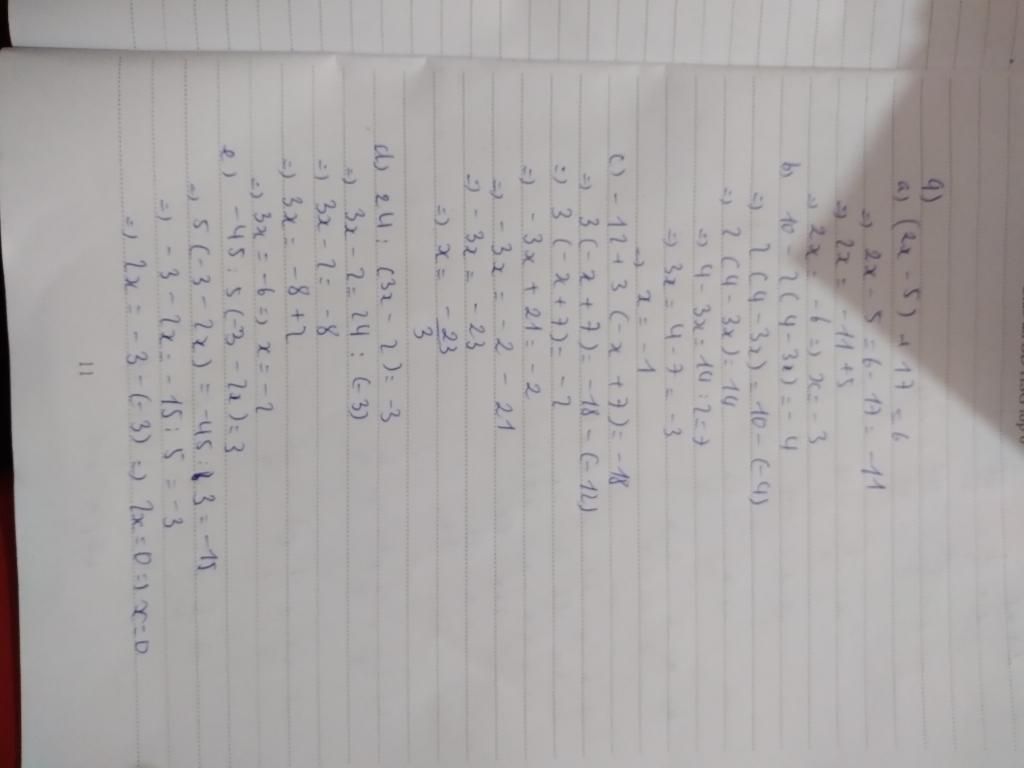 9)
a) (2x - 5) + 17 = 6
=) 2x - 5 = 6 - 17 = -11
=) 2x = -11 + 5
=) 2x = -6 =) x = -3
b) 10 - 2(4 - 3x) = -4
=) 2(4 - 3x) = 10 - (-4)
=) 2(4 - 3x) = 14
=) 4 - 3x = 14 : 2 = 7
=) 3x = 4 - 7 = -3
=) x = -1
c) - 12 + 3(-x + 7) = -18
=) 3(-x + 7) = -18 - (-12)
=) 3(-x + 7) = -2
=) -3x + 21 = -2
=) -3x = -2 - 21
=) -3x = -23
=) x = -23/3
d) 24 : (3x - 2) = -3
=) 3x - 2 = 24 : (-3)
=) 3x - 2 = -8
=) 3x = -8 + 2
=) 3x = -6 =) x = -2
e) -45 : 5(-3 - 2x) = 3
=) 5(-3 - 2x) = -45 : 3 = -15
=) -3 - 2x = -15 : 5 = -3
=) 2x = -3 - (-3) =) 2x = 0 =) x = 0
11